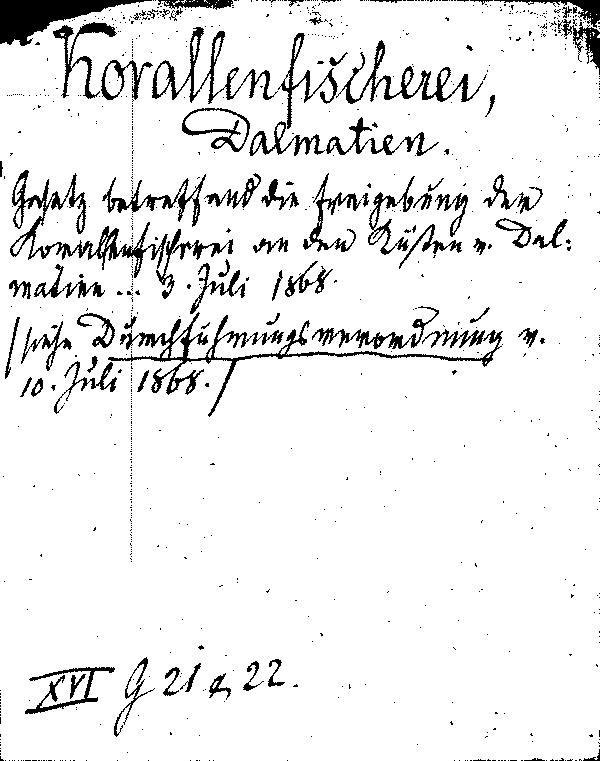 Korallenfischerei,
Dalmatien.
Gesetz betreffend die Freigebung der
Korallenfischerei an den Küsten v. Dal:
matien ... 3. Juli 1868.
/siehe Durchführungsverordnung v.
10. Juli 1868./
XVI G 21 & 22.